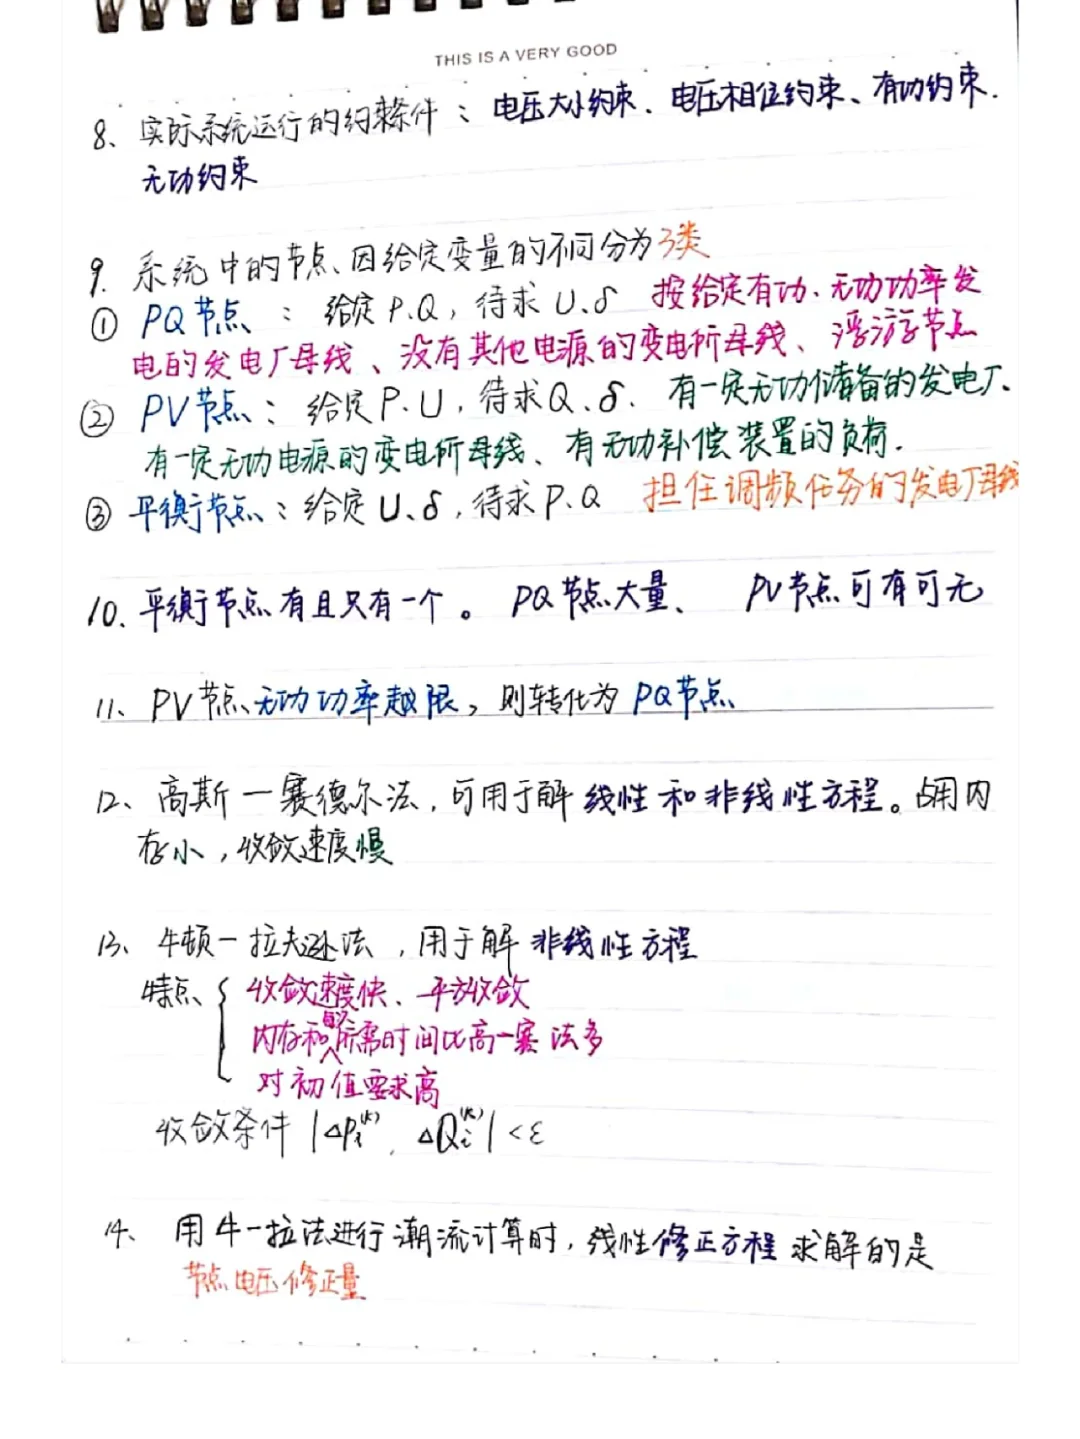 THIS IS A VERY GOOD
8、实际系统运行的约束条件：电压大小约束、电压相位约束、有功约束.
无功约束
9. 系统中的节点、因给定变量的不同分为3类
① PQ节点：给定P.Q，待求U.δ 按给定有功、无功功率发
电的发电厂母线、没有其他电源的变电所母线、浮游节点
② PV节点：给定P.U，待求Q.δ. 有一定无功储备的发电厂、
有一定无功电源的变电所母线、有无功补偿装置的负荷.
③ 平衡节点：给定U、δ，待求P.Q 担任调频任务的发电厂母线
10、平衡节点有且只有一个。PQ节点大量、 PV节点可有可无
11、PV节点无功功率越限，则转化为PQ节点
12、高斯一赛德尔法，可用于解线性和非线性方程。占用内
存小，收敛速度慢
13、牛顿一拉夫逊法，用于解非线性方程
特点 { 收敛速度快、平方收敛
内存和每次所需时间比高一赛法多
对初值要求高
收敛条件 |ΔPi^(k), ΔQi^(k)| < ε
14、用牛一拉法进行潮流计算时，线性修正方程求解的是
节点电压修正量